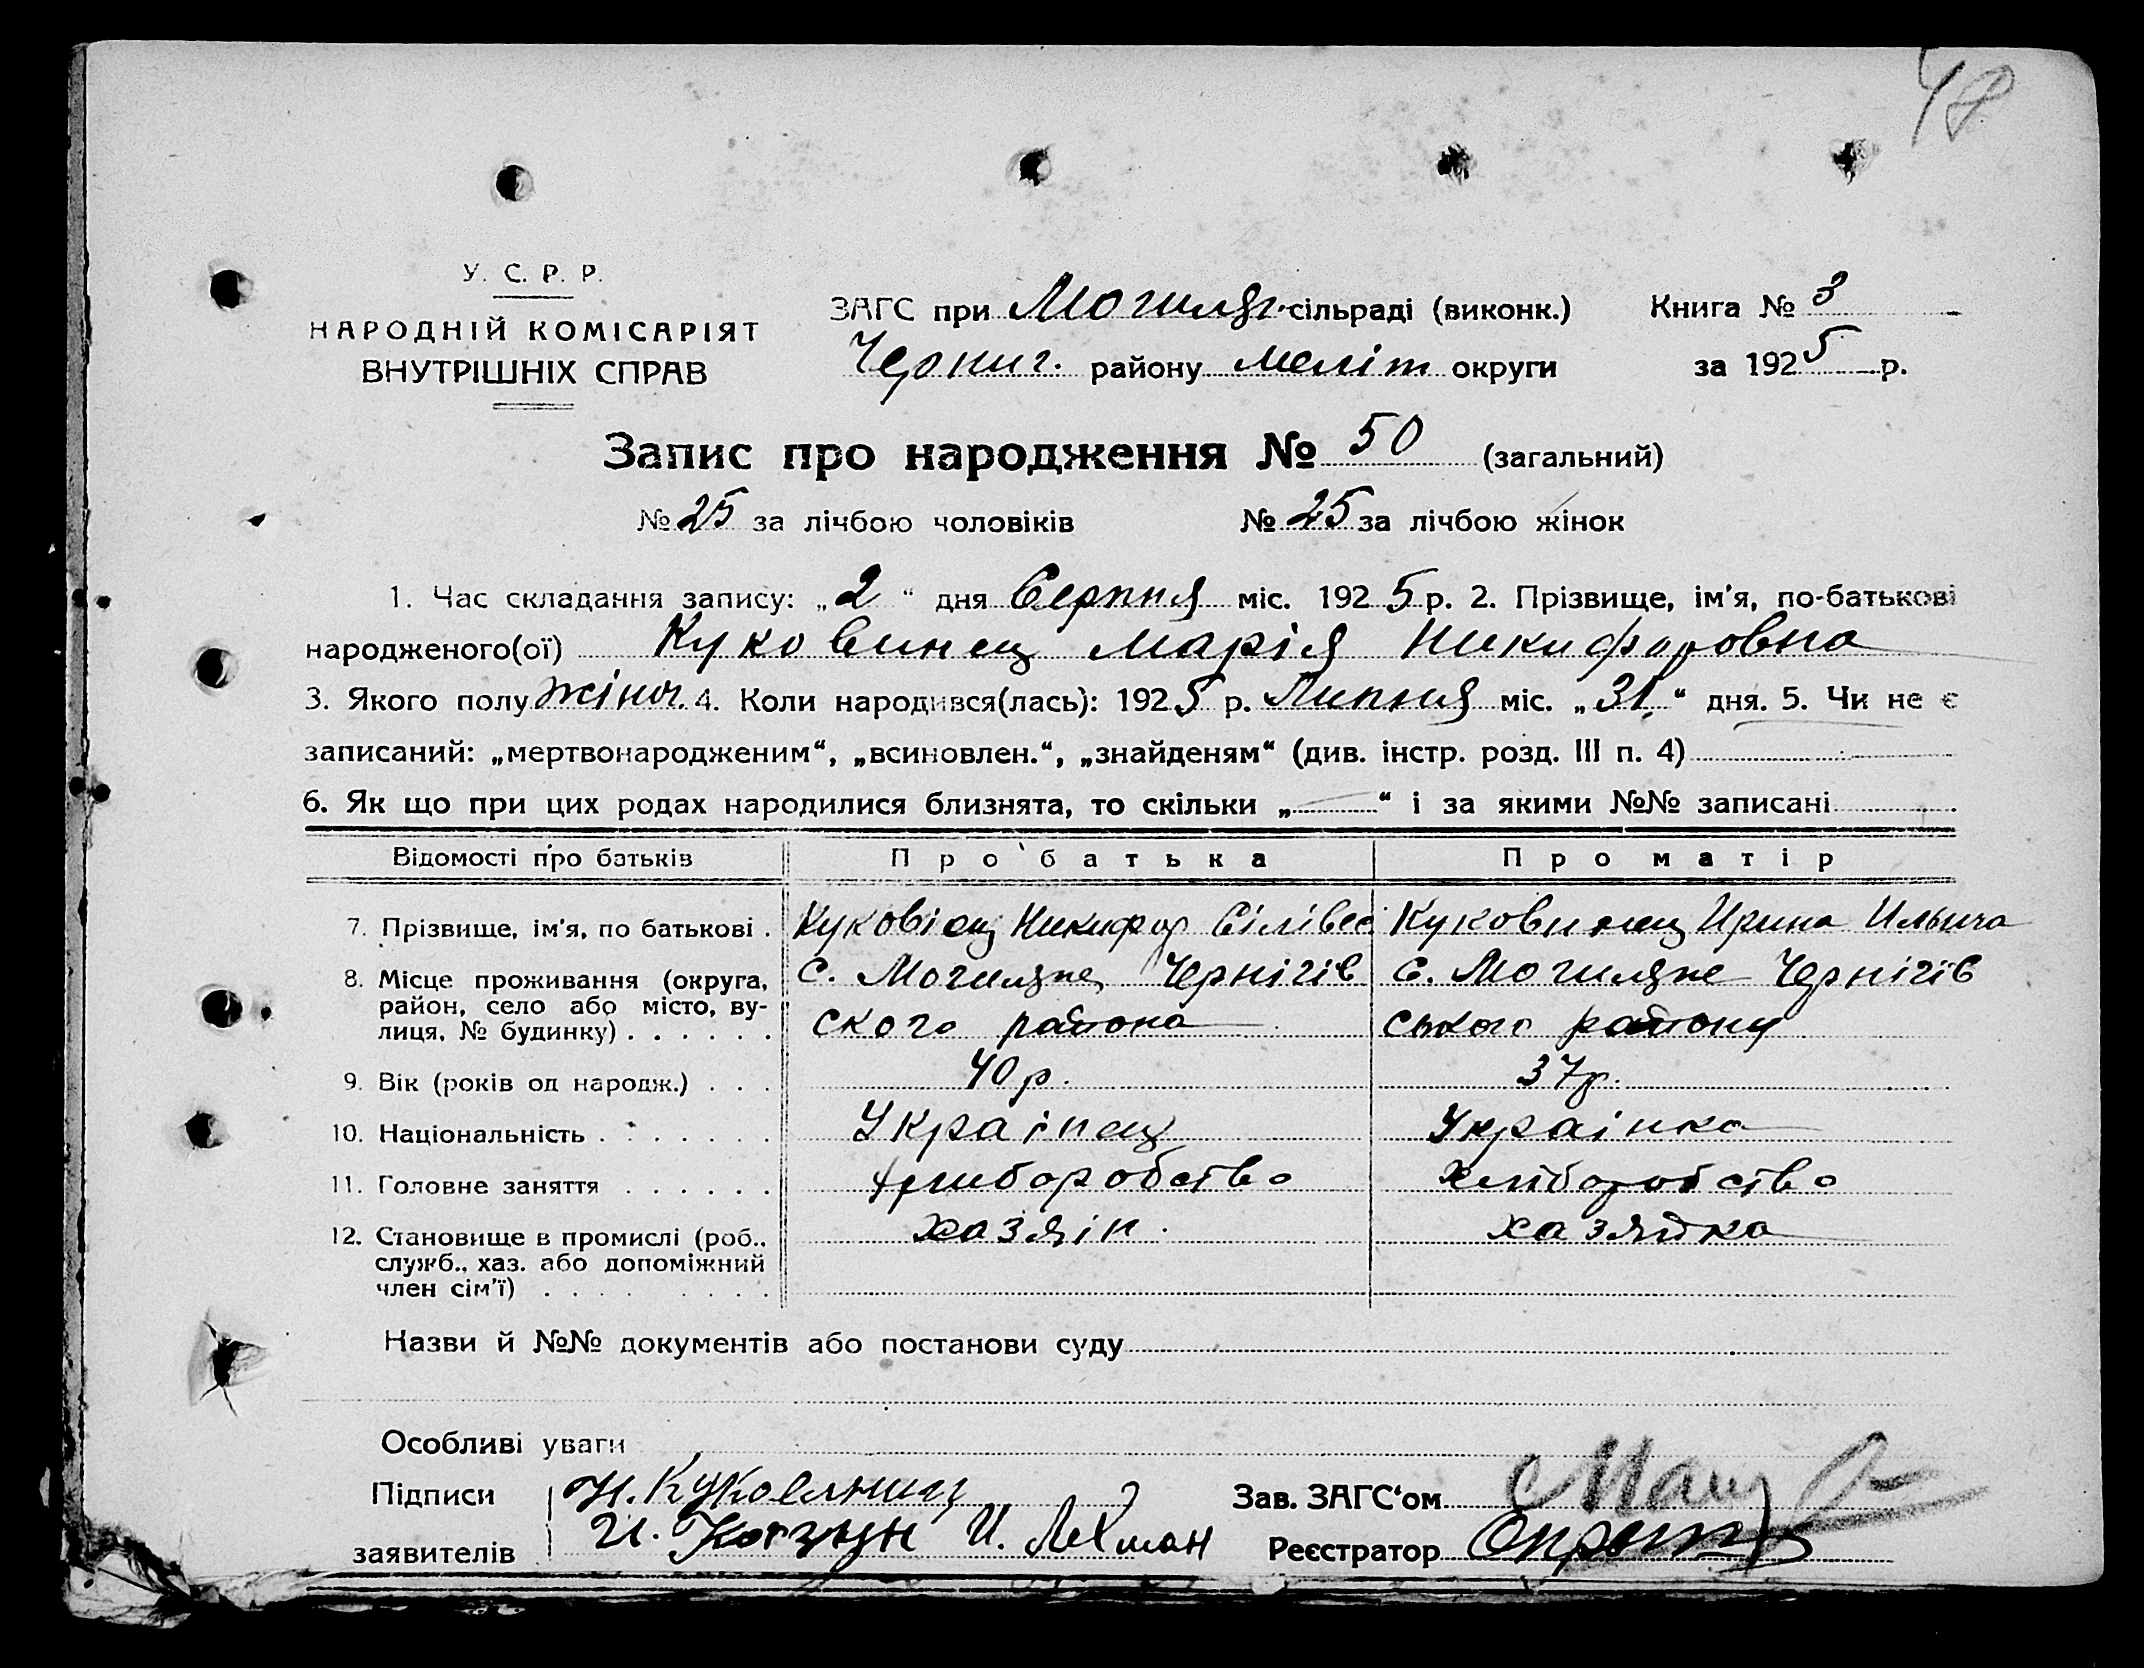 48
У. С. Р. Р.
НАРОДНІЙ КОМІСАРІЯТ
ВНУТРІШНІХ СПРАВ
ЗАГС при Могилян. сільраді (виконк.) Книга № 3
Черниг. району Меліт округи за 1925 р.
Запис про народження № 50 (загальний)
№ 25 за лічбою чоловіків № 25 за лічбою жінок
1. Час складання запису: „2“ дня Серпня міс. 1925 р. 2. Прізвище, ім'я, по-батькові
народженого(ої) Куковинец Марія Никифоровна
3. Якого полу жіноч. 4. Коли народився(лась): 1925 р. Липня міс. „31“ дня. 5. Чи не є
записаний: „мертвонародженим“, „всиновлен.“, „знайденям“ (див. інстр. розд. III п. 4)
6. Як що при цих родах народилися близнята, то скільки „—“ і за якими №№ записані
Відомості про батьків Про батька Про матір
7. Прізвище, ім'я, по батькові . Куковіец Никифор Сілівес Куковинец Ирина Ильича
8. Місце проживання (округа, с. Могиляне Чернігів с. Могиляне Чернігів
район, село або місто, ву-
лиця, № будинку) . . . . . . ского района ського району
9. Вік (років од народж.) . . . 40 р. 37 р.
10. Національність . . . . . . . Украінец Украінка
11. Головне заняття . . . . . . хлиборобство хлиборобство
12. Становище в промислі (роб., хазяін. хазяйка
служб., хаз. або допоміжний
член сім'ї) . . . . . . . .
Назви й №№ документів або постанови суду
Особливі уваги
Підписи Н. Куковинец Зав. ЗАГС‘ом
заявителів И. И. Лехман Реєстратор